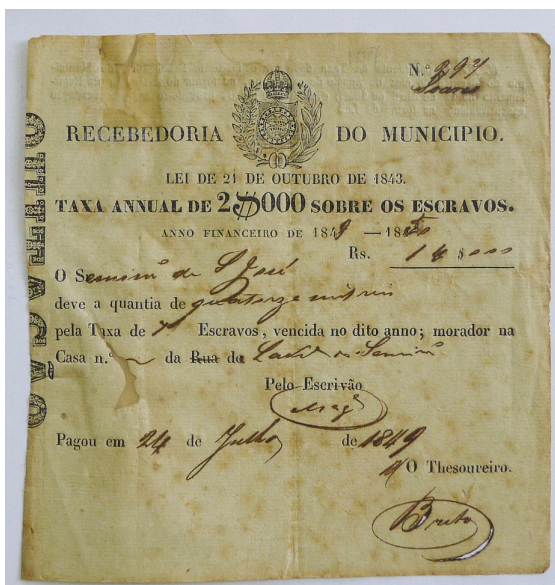 N.º 297
Soares
RECEBEDORIA DO MUNICIPIO.
LEI DE 21 DE OUTUBRO DE 1843.
TAXA ANNUAL DE 2$000 SOBRE OS ESCRAVOS.
ANNO FINANCEIRO DE 1849 — 1850
Rs. 14$000
O Seminr.º de S José
deve a quantia de quatorze mil reis
pela Taxa de 7 Escravos, vencida no dito anno; morador na
Casa n.º da Rua da Lad.ª do Seminr.º
Pelo Escrivão
Pagou em 24 de Julho de 1849
O Thesoureiro.
Brito